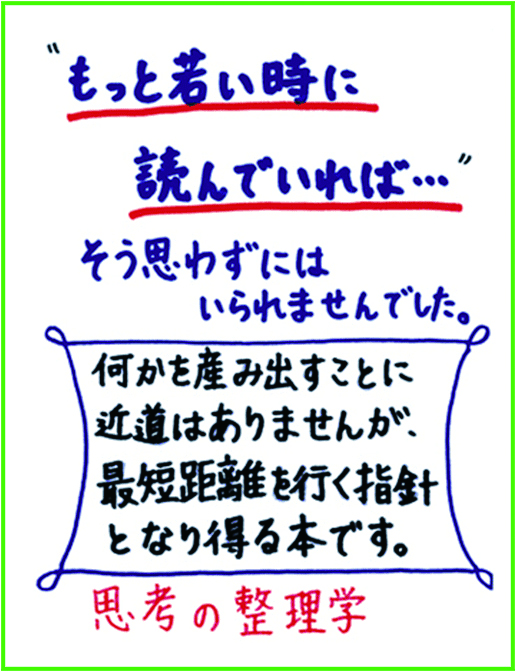 “もっと若い時に
読んでいれば…”
そう思わずには
いられませんでした。
何かを産み出すことに
近道はありませんが、
最短距離を行く指針
となり得る本です。
思考の整理学